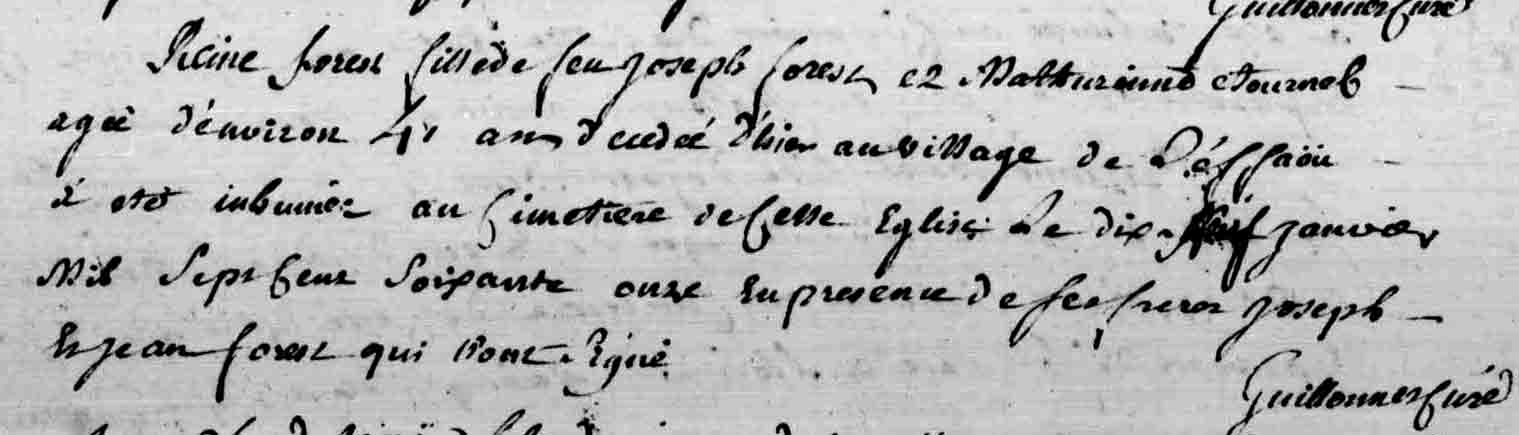 Guillonner Curé
Reine forest fille de feu joseph forest et Mathurinne
agée d'environ 41 ans decedée d'hier au village de
à eté inhumée au Cimetiere de Cette Eglise Le dix janvier
Mil Sept Cent Soixante onze En presence de ses freres joseph
Et jean forest qui n'ont signé
Guillonner Curé